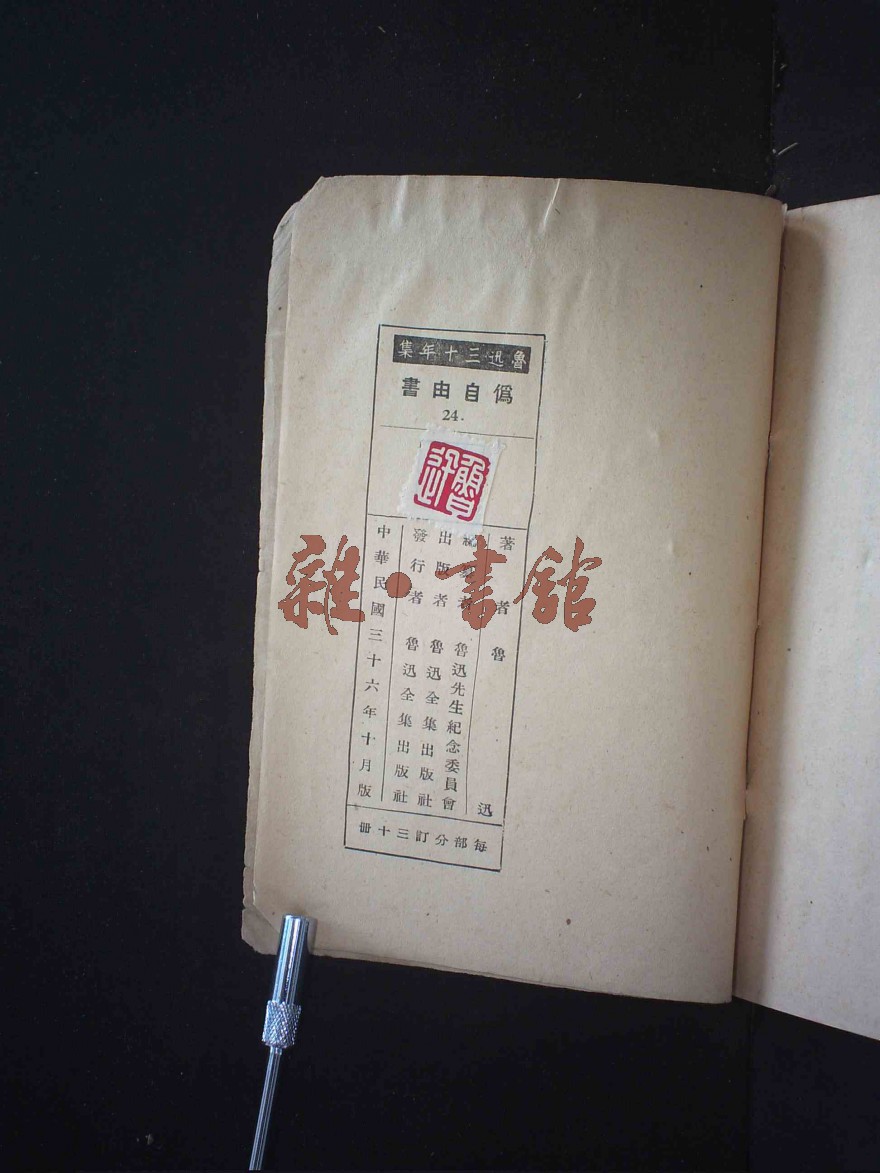 魯迅三十年集
偽自由書
24.
魯迅
著者 魯迅
紀念者 魯迅先生紀念委員會
出版者 魯迅全集出版社
發行者 魯迅全集出版社
中華民國三十六年十月版
每部分訂三十冊
雜·書館